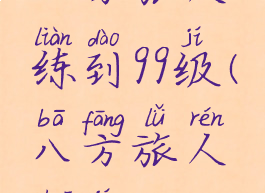 liàn dào jí
练到99级(
bā fāng lǚ rén
八方旅人